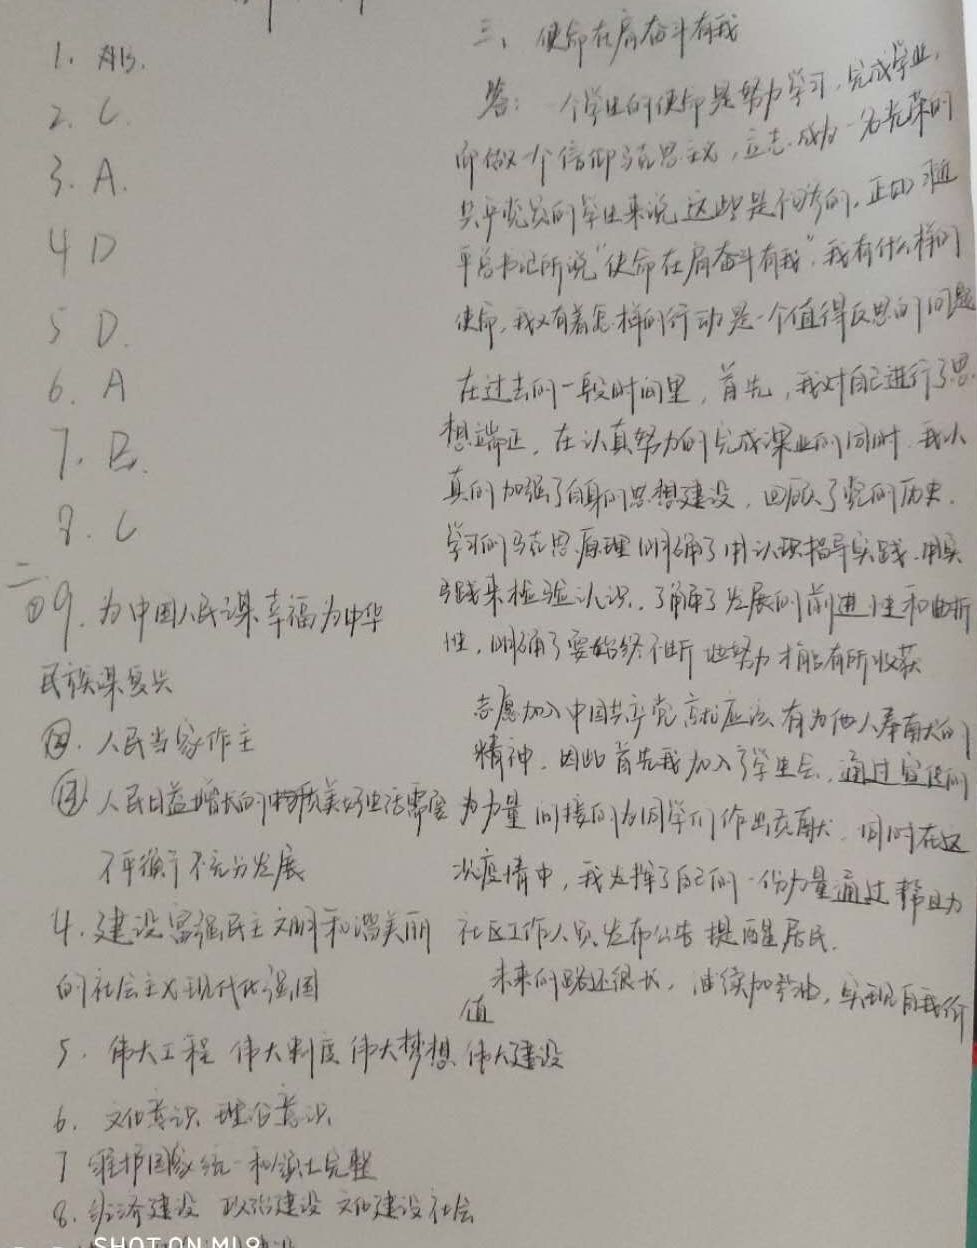 1. AB.
2. C.
3. A.
4 D
5 D.
6. A
7. B.
8. C
二
① 9. 为中国人民谋幸福为中华
民族谋复兴
②. 人民当家作主
③ 人民日益增长的美好生活需要
不平衡不充分发展
4. 建设富强民主文明和谐美丽
的社会主义现代化强国
5. 伟大工程 伟大制度 伟大梦想 伟大建设
6. 文化意识 理论意识
7 维护国家统一和领土完整
8. 经济建设 政治建设 文化建设 社会
三、使命在肩奋斗有我
答：一个学生的使命是努力学习，完成学业，
即做一个信仰马克思主义，立志成为一名光荣的
共产党员的学生来说，这些是不够的，正如习近
平总书记所说“使命在肩奋斗有我”，我有什么样的
使命，我又有着怎样的行动是一个值得反思的问题
在过去的一段时间里，首先，我对自己进行了思
想端正，在认真努力的完成课业的同时，我认
真的加强了自身的思想建设，回顾了党的历史，
学习的马克思原理明确了用认识指导实践，用实
践来检验认识，了解了发展的前进性和曲折
性，明确了要始终不断地努力才能有所收获
志愿加入中国共产党就应该有为他人奉献的
精神，因此首先我加入了学生会，通过宣传的
力量间接的为同学们作出贡献，同时在这
次疫情中，我发挥了自己的一份力量通过帮助
社区工作人员发布公告提醒居民.
未来的路还很长，继续加油，实现自我价
值
SHOT ON MI 8